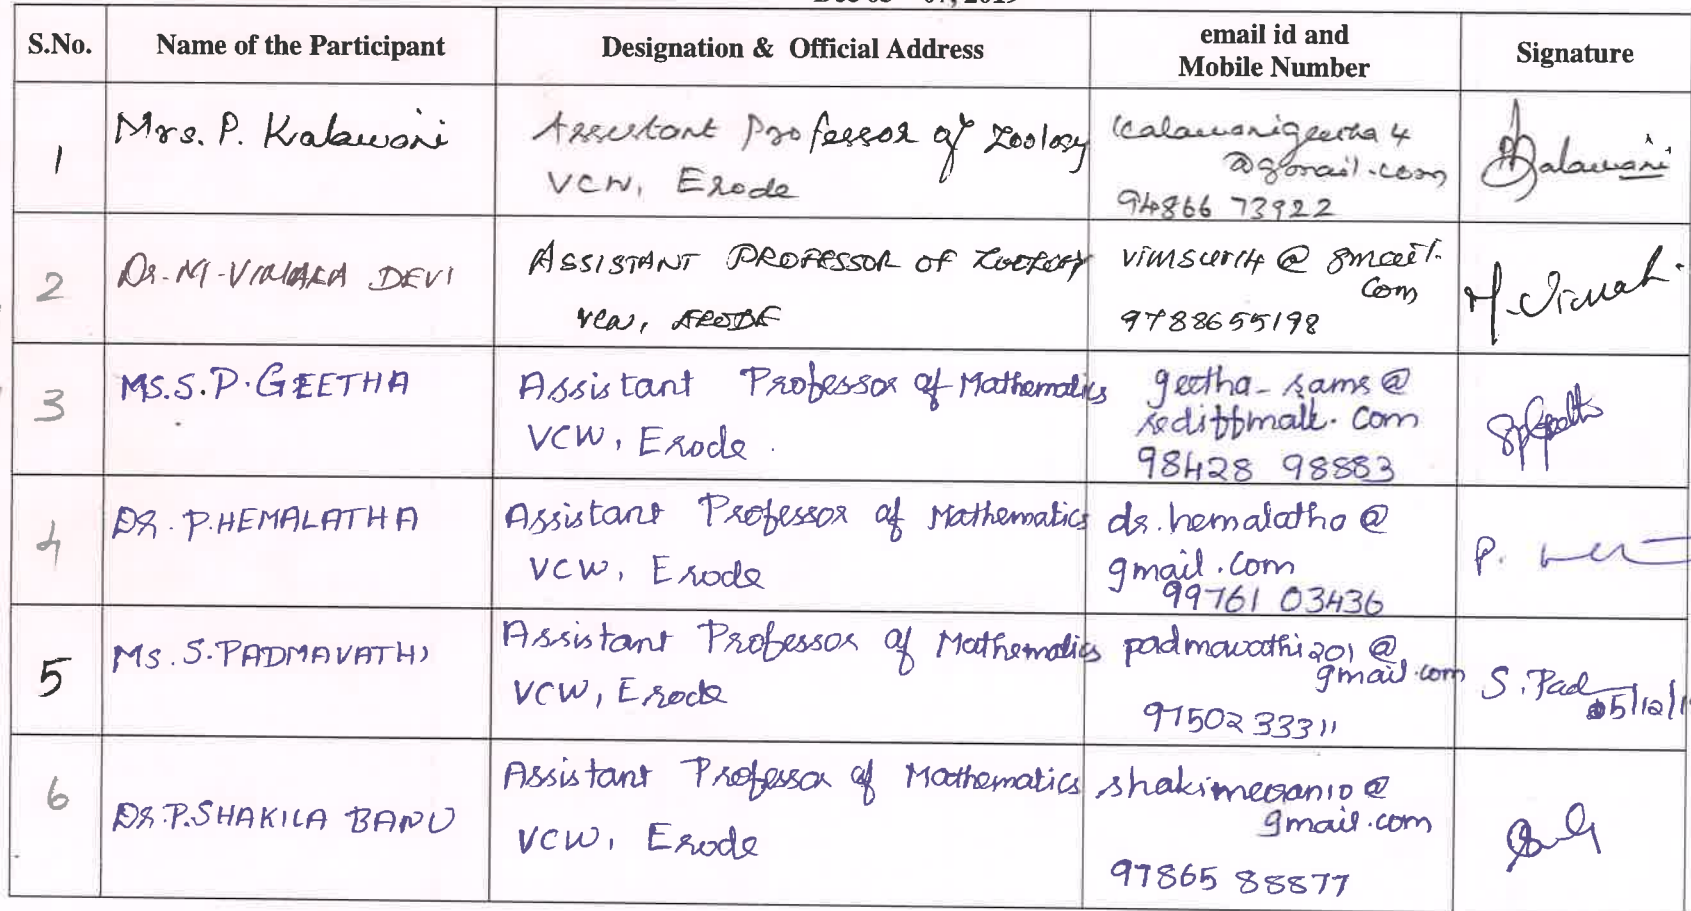 S.No. Name of the Participant Designation & Official Address email id and Mobile Number Signature
1 Mrs. P. Kalavani Assistant Professor of Zoology kalavanigeetha4
VCW, Erode @gmail.com
94866 73922
2 Dr. M. VIMALA DEVI ASSISTANT PROFESSOR OF ZOOLOGY @ gmail.
VCW, ERODE com
9788655198
3 MS. S. P. GEETHA Assistant Professor of Mathematics geetha_sams@
VCW, Erode. rediffmail.com
98428 98883
4 DR. P. HEMALATHA Assistant Professor of Mathematics dr.hemalatha@
VCW, Erode gmail.com
99761 03436
P.
5 MS. S. PADMAVATHI Assistant Professor of Mathematics padmavathi201@
VCW, Erode gmail.com
97502 33311
S. Pad
05/12/1
6 DR. P. SHAKILA BANU Assistant Professor of Mathematics @
VCW, Erode gmail.com
97865 88877